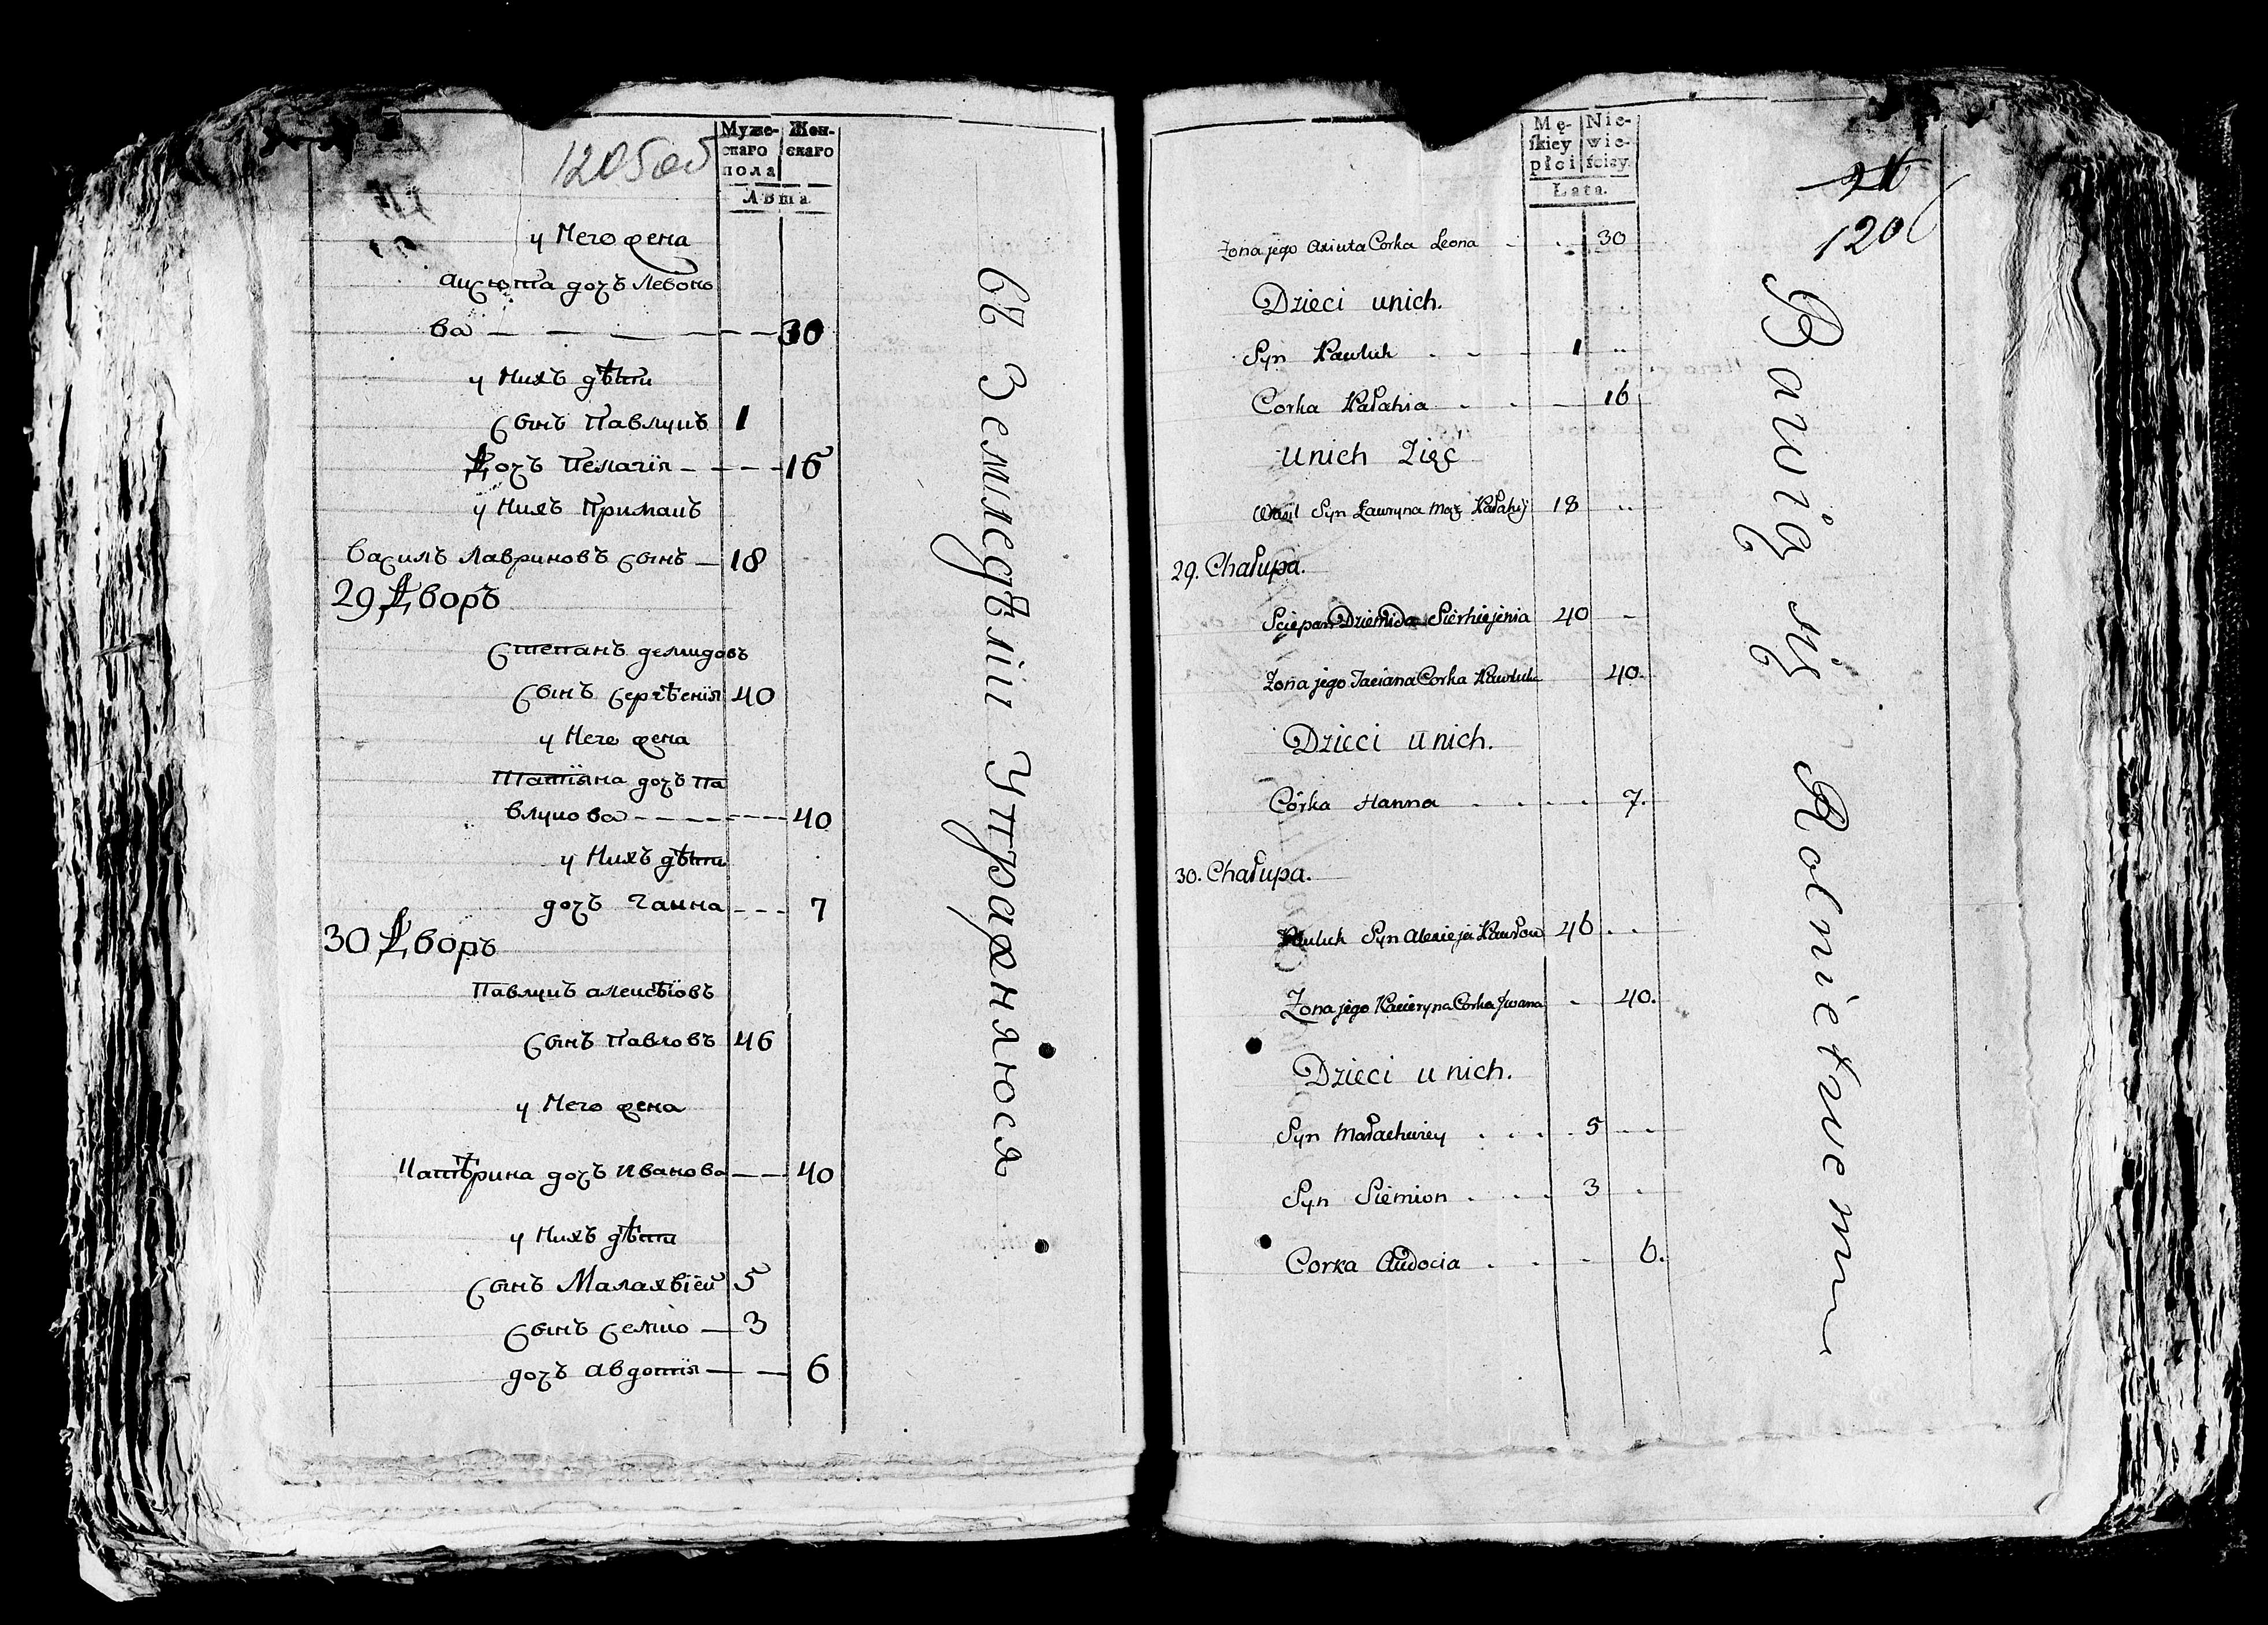 1205 об
Муже-
скаго
пола
Жен-
скаго
Лѣта
у Него жена
аксюта дочь Левоно
ва — — — — — 30
у Нихъ дѣти
Сынъ Павлукъ 1
Дочь Пелагія — — — 16
у Нихъ Примакъ
Василь Лавриновъ Сынъ — 18
29 Дворъ
Степанъ демидовъ
Сынъ Сергѣенія 40
у Него жена
Татіяна дочь Па
влукова — — — — 40
у Нихъ дѣти
дочь Ганна — — — 7
30 Дворъ
Павлукъ алексѣіовъ
Сынъ Павловъ 46
у Него жена
Катѣрина дочь Иванова — — 40
у Нихъ дѣти
Сынъ Малахвіей 5
Сынъ Семіо — 3
дочь авдотія — — 6
въ Земледѣліи Упражняюся
Mę-
ſkiey
płci
Nie-
wie-
ściey.
Lata.
1206
Zona jego Axiuta Corka Leona . . 30
Dzieci unich.
Syn Pawluk . . - 1 ..
Corka Pałahia . . . — 16
Unich Zięć
Wasil Syn Ławryna Mąż Pałahij 18 ..
29. Chałupa.
Sciepan Dziemida Sierhiejenia 40 -
Zona jego Taciana Corka Pawluka 40.
Dzieci unich.
Córka Hanna . . . . . 7.
30. Chałupa.
Pauluk Syn Alexieja Pawłow 46 . .
Zona jego Kacieryna Corka Jwana - 40.
Dzieci unich.
Syn Małachwiey . . . . 5 - -
Syn Siemion . . . . 3 .
Corka Audocia . . . - 6.
Bawią się Rolnictwem